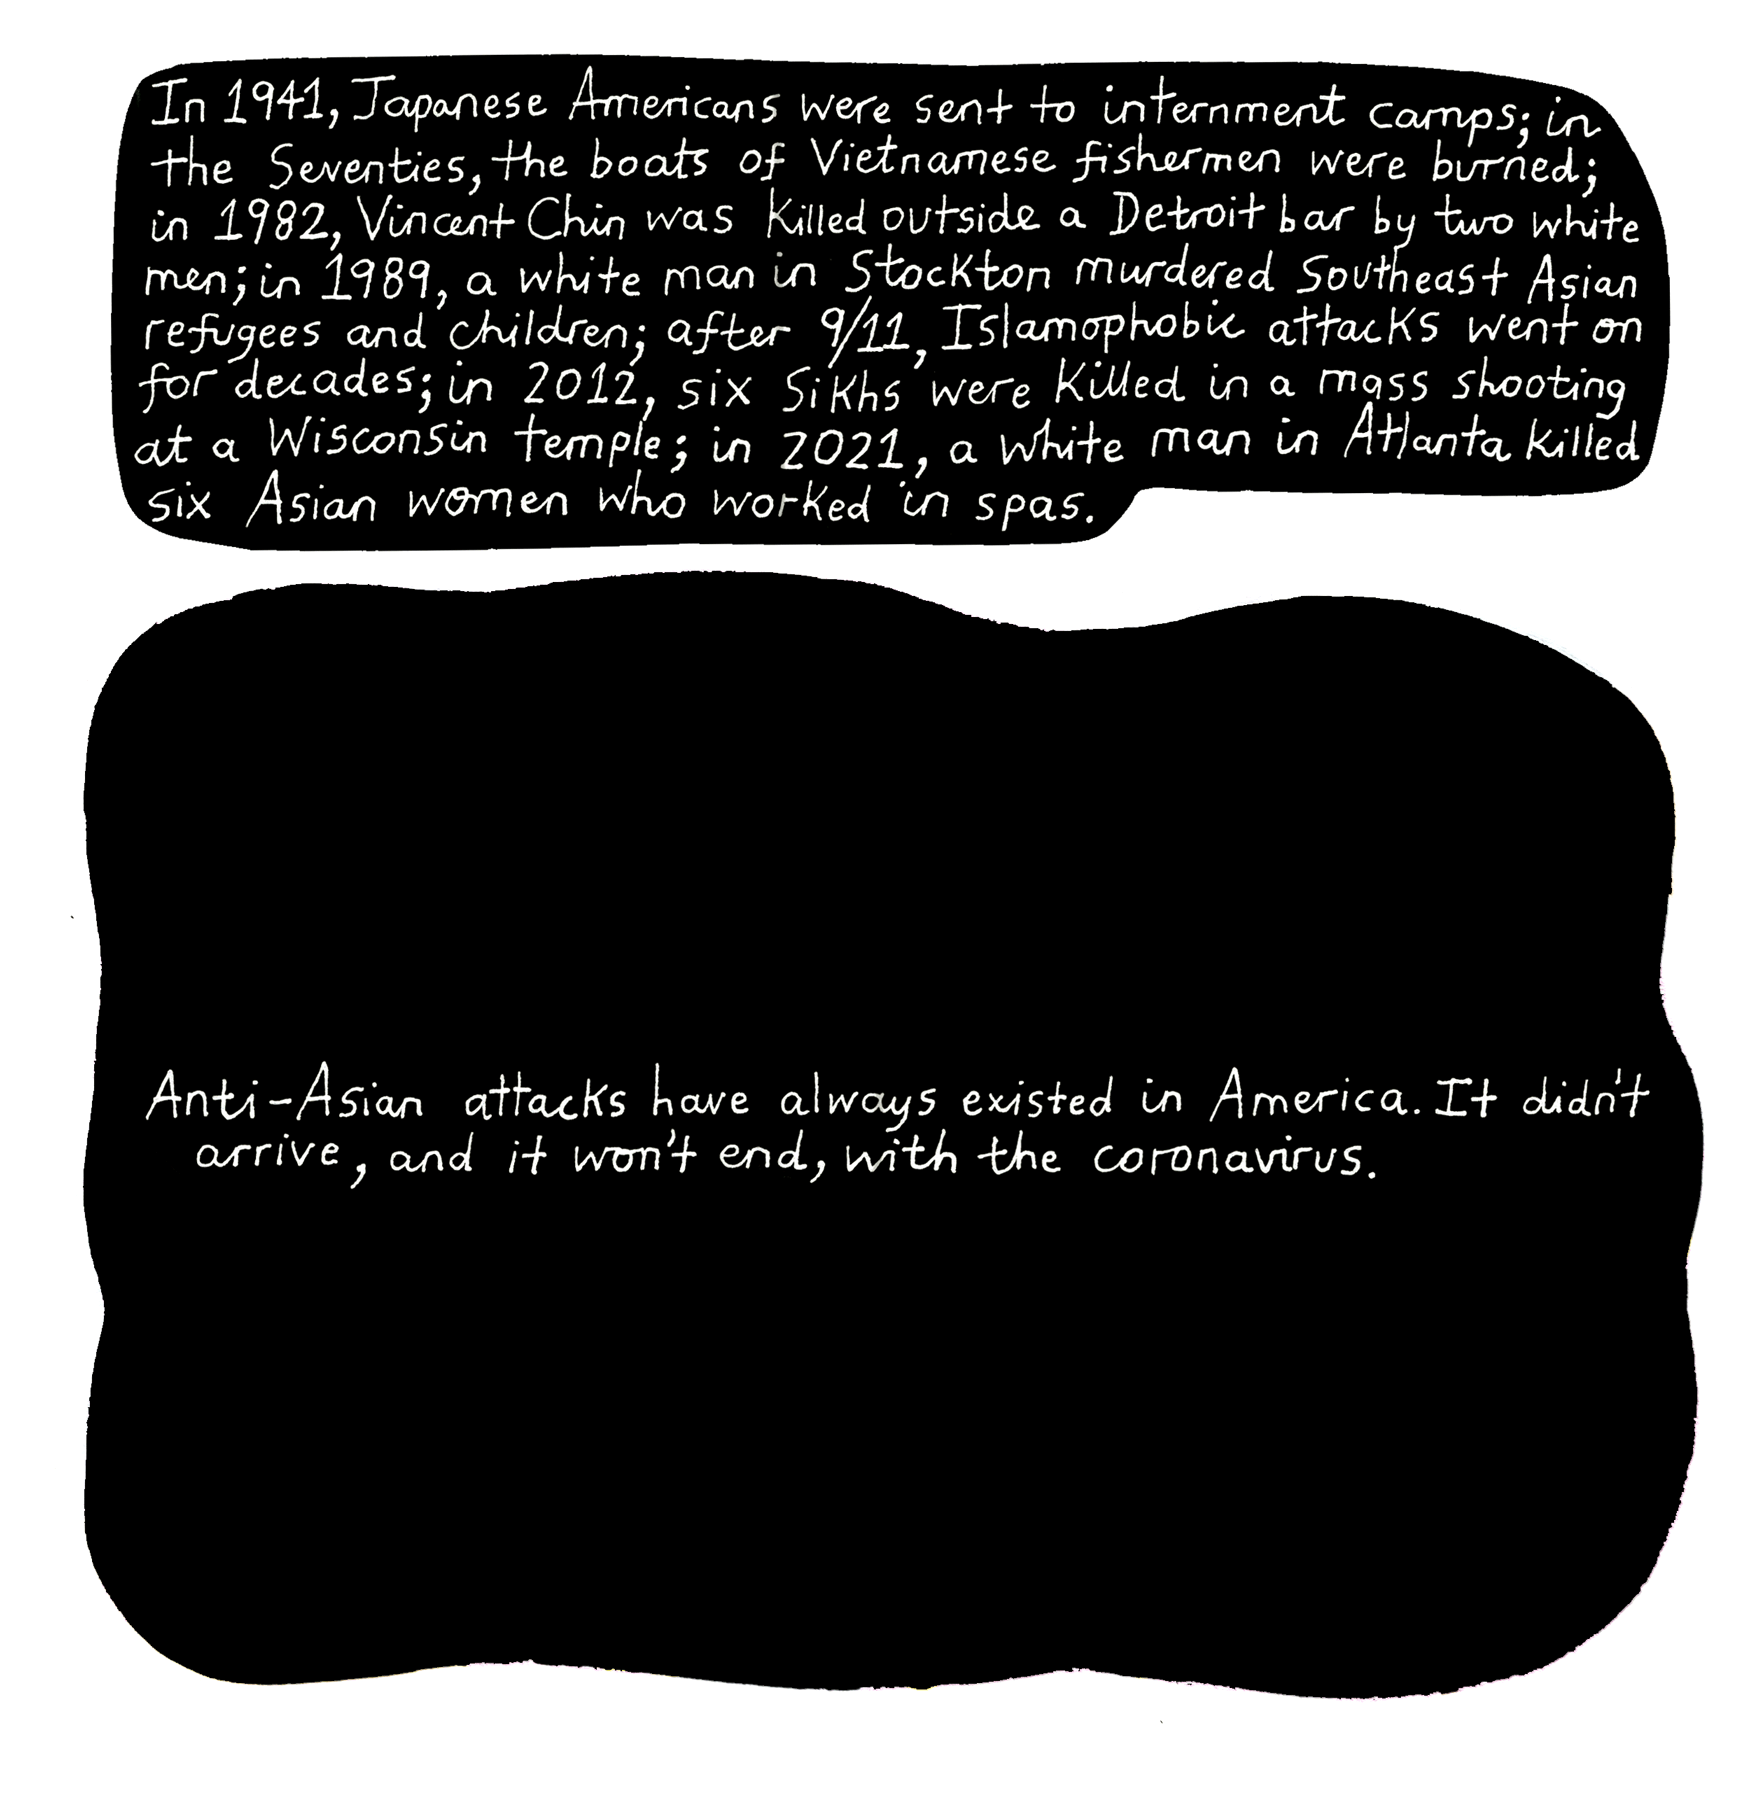 In 1941, Japanese Americans were sent to internment camps; in
the Seventies, the boats of Vietnamese fishermen were burned;
in 1982, Vincent Chin was killed outside a Detroit bar by two white
men; in 1989, a white man in Stockton murdered Southeast Asian
refugees and children; after 9/11, Islamophobic attacks went on
for decades; in 2012, six Sikhs were killed in a mass shooting
at a Wisconsin temple; in 2021, a white man in Atlanta killed
six Asian women who worked in spas.
Anti-Asian attacks have always existed in America. It didn't
arrive, and it won't end, with the coronavirus.